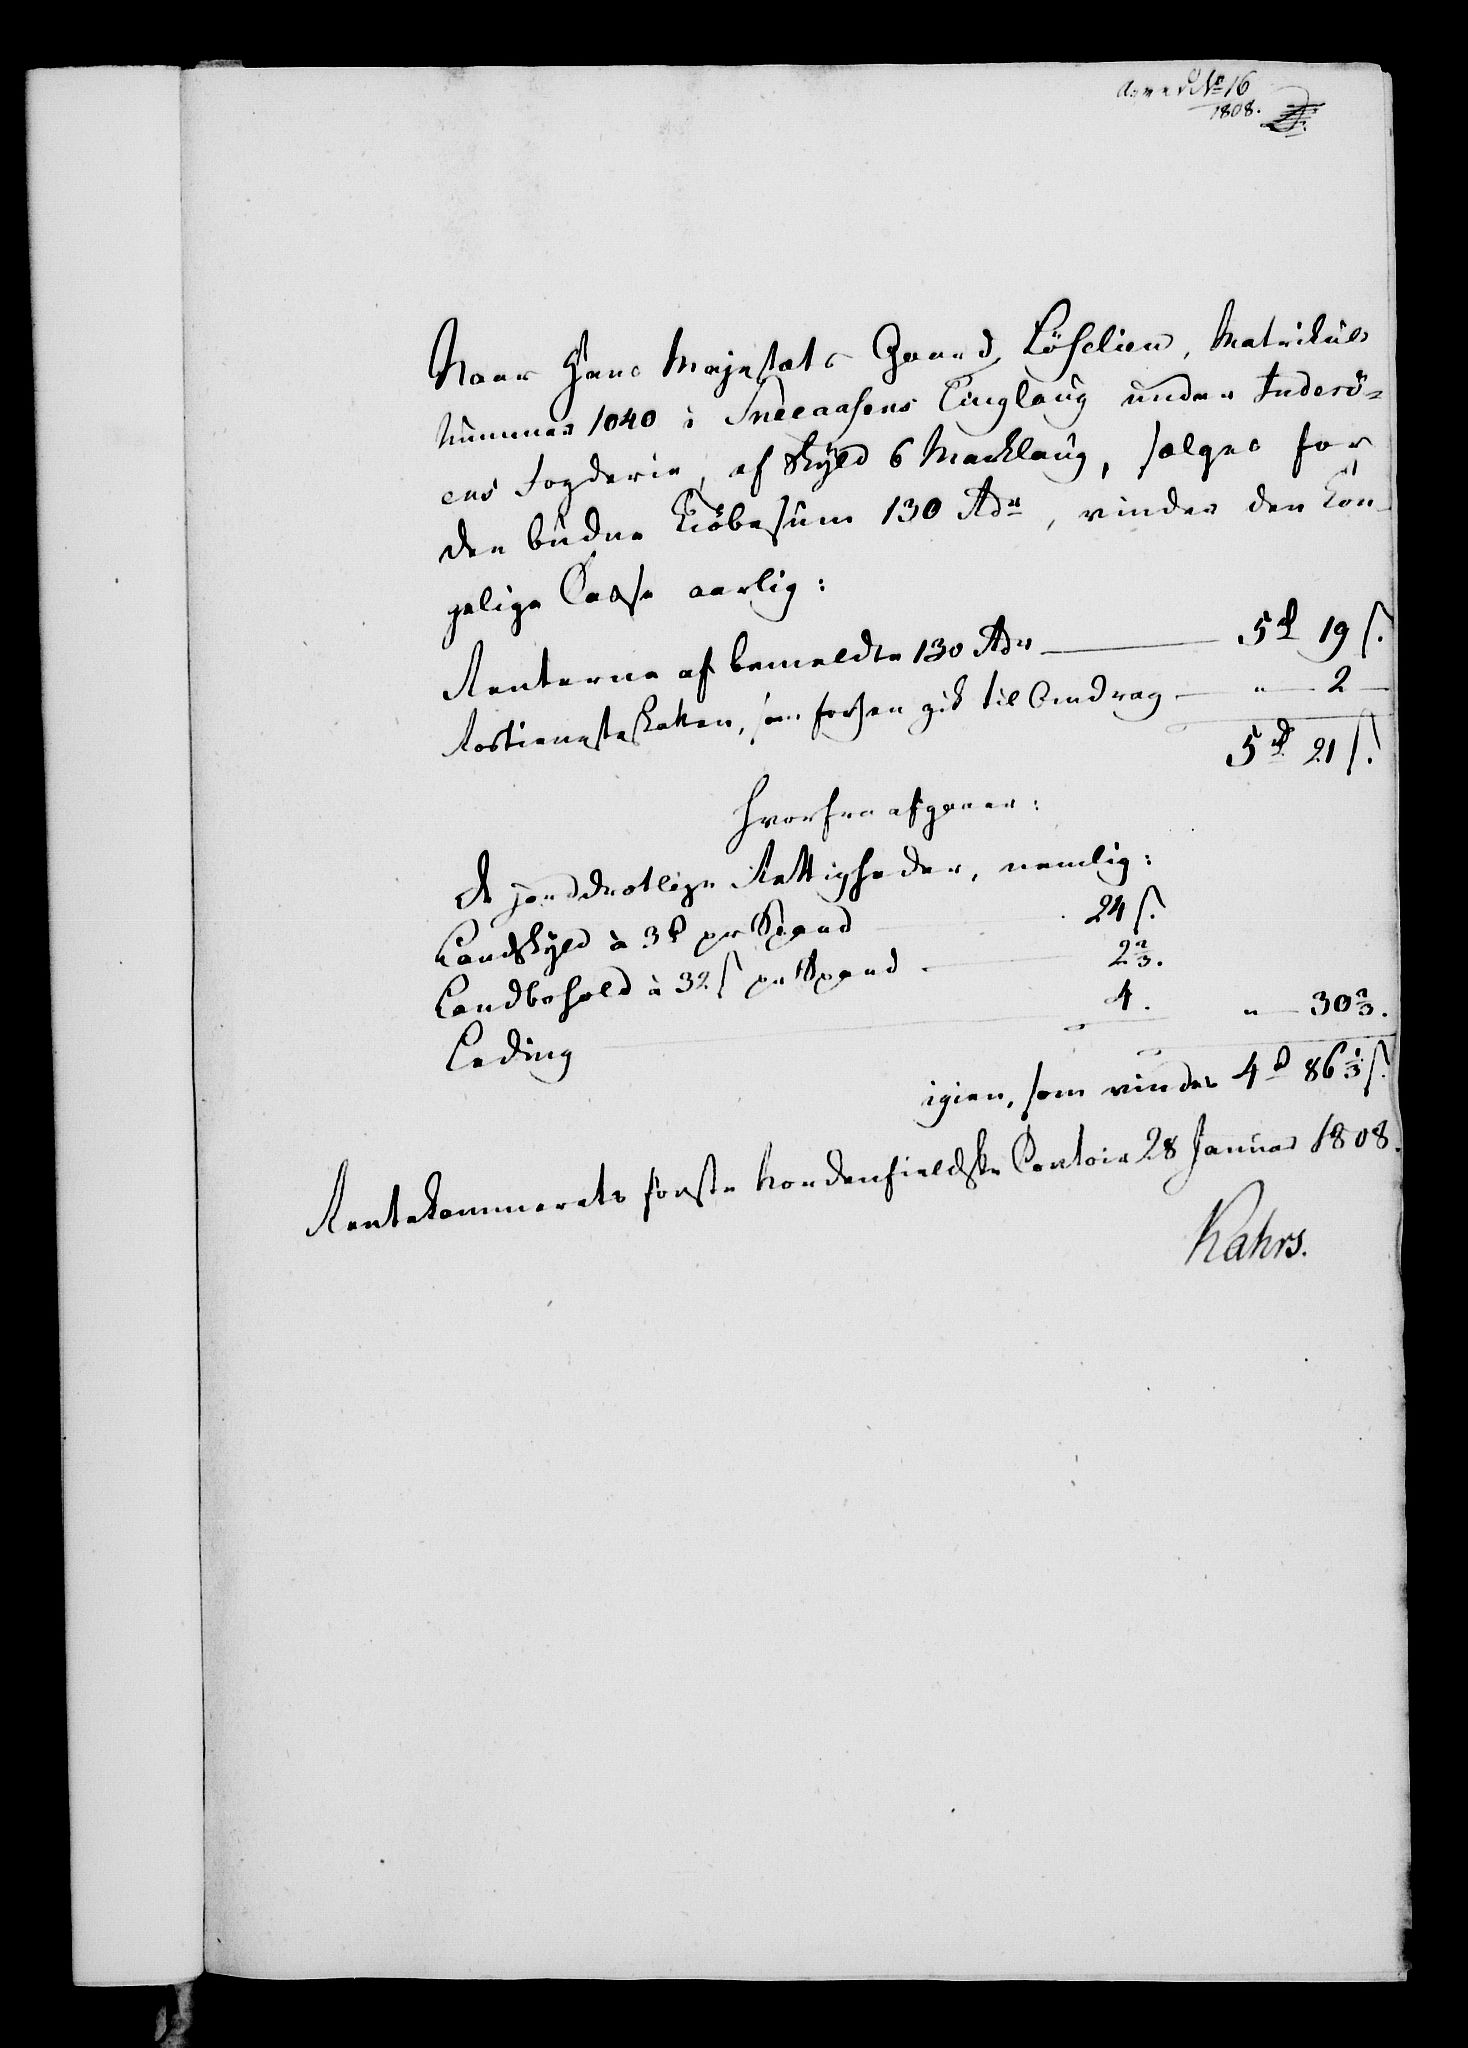 No 16
1808.
Naar Hans Majestæts Gaard Löselien, Matrikuls
Nummer 1040 i Sneeaasens Tinglaug under Inderö-
ens Fogderie, af Skyld 6 Marklaug, sælges for
den budne Kiöbesum 130 Rdr, vinder den Kon-
gelige Casse aarlig:
Renterne af bemeldte 130 Rdr — 5 rd 19 s.
Rostienesteskatten, som forhen gik til Omdrag — " — 2 —
5 rd 21 s.
Hvorfra afgaaer:
de jorddrotlige Rettigheder, nemlig:
Landskyld à 3 rd pr Spand — 24 s.
Landbohold à 32 s pr Spand — 2 2/3.
Leding — 4. " — 30 2/3.
igien, som vindes 4 rd 86 1/3 s.
Rentekammerets förste Nordenfieldske Contoir 28 Januar 1808.
Kahrs.